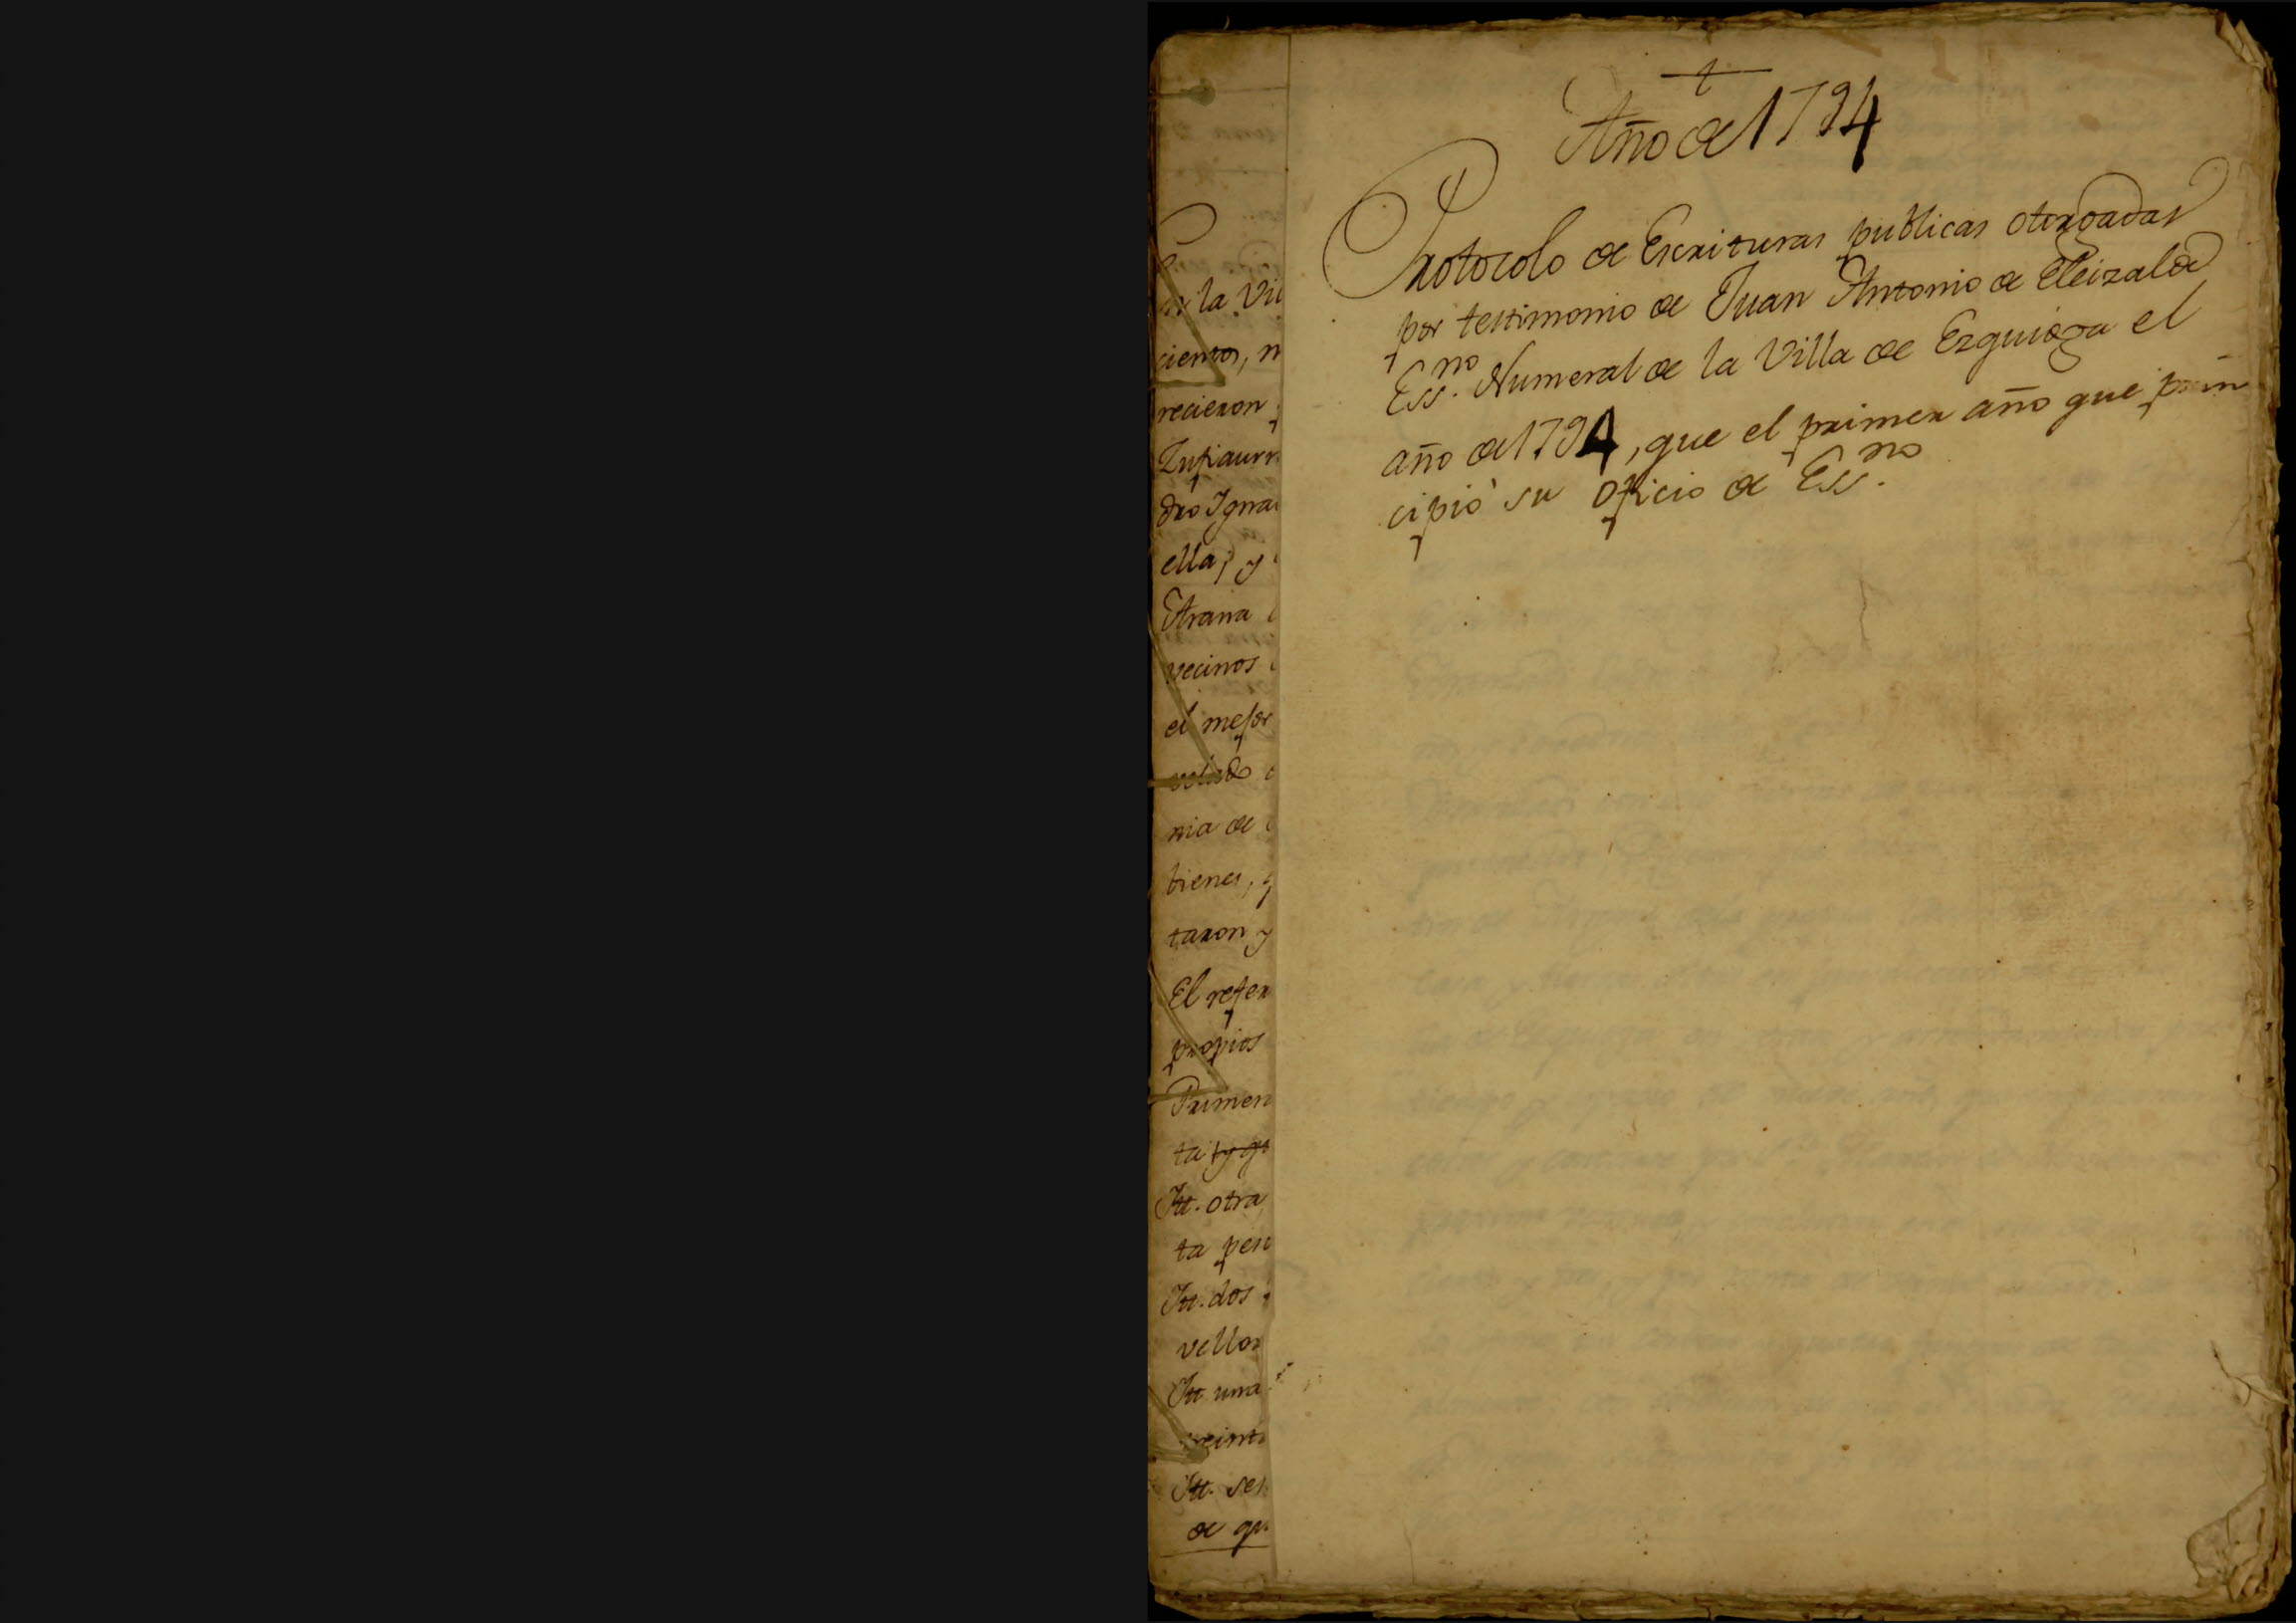 Año de 1794
Protocolo de Escrituras publicas otorgadas
por testimonio de Juan Antonio de Eleizalde
Ess.no Numeral de la Villa de Ezquioga el
año de 1794, que el primer año que prin
cipió su oficio de Ess.no
la Vil
cientos, n
recieron
Zufiaurr
dro Igna
ella; y
Arana
vecinos
el mejor
nia de
bienes,
taron y
El refer
propios
Primer
ta
Itt. otra
ta pes
Itt. dos
vellon
Itt una
Itt. ses
de qu